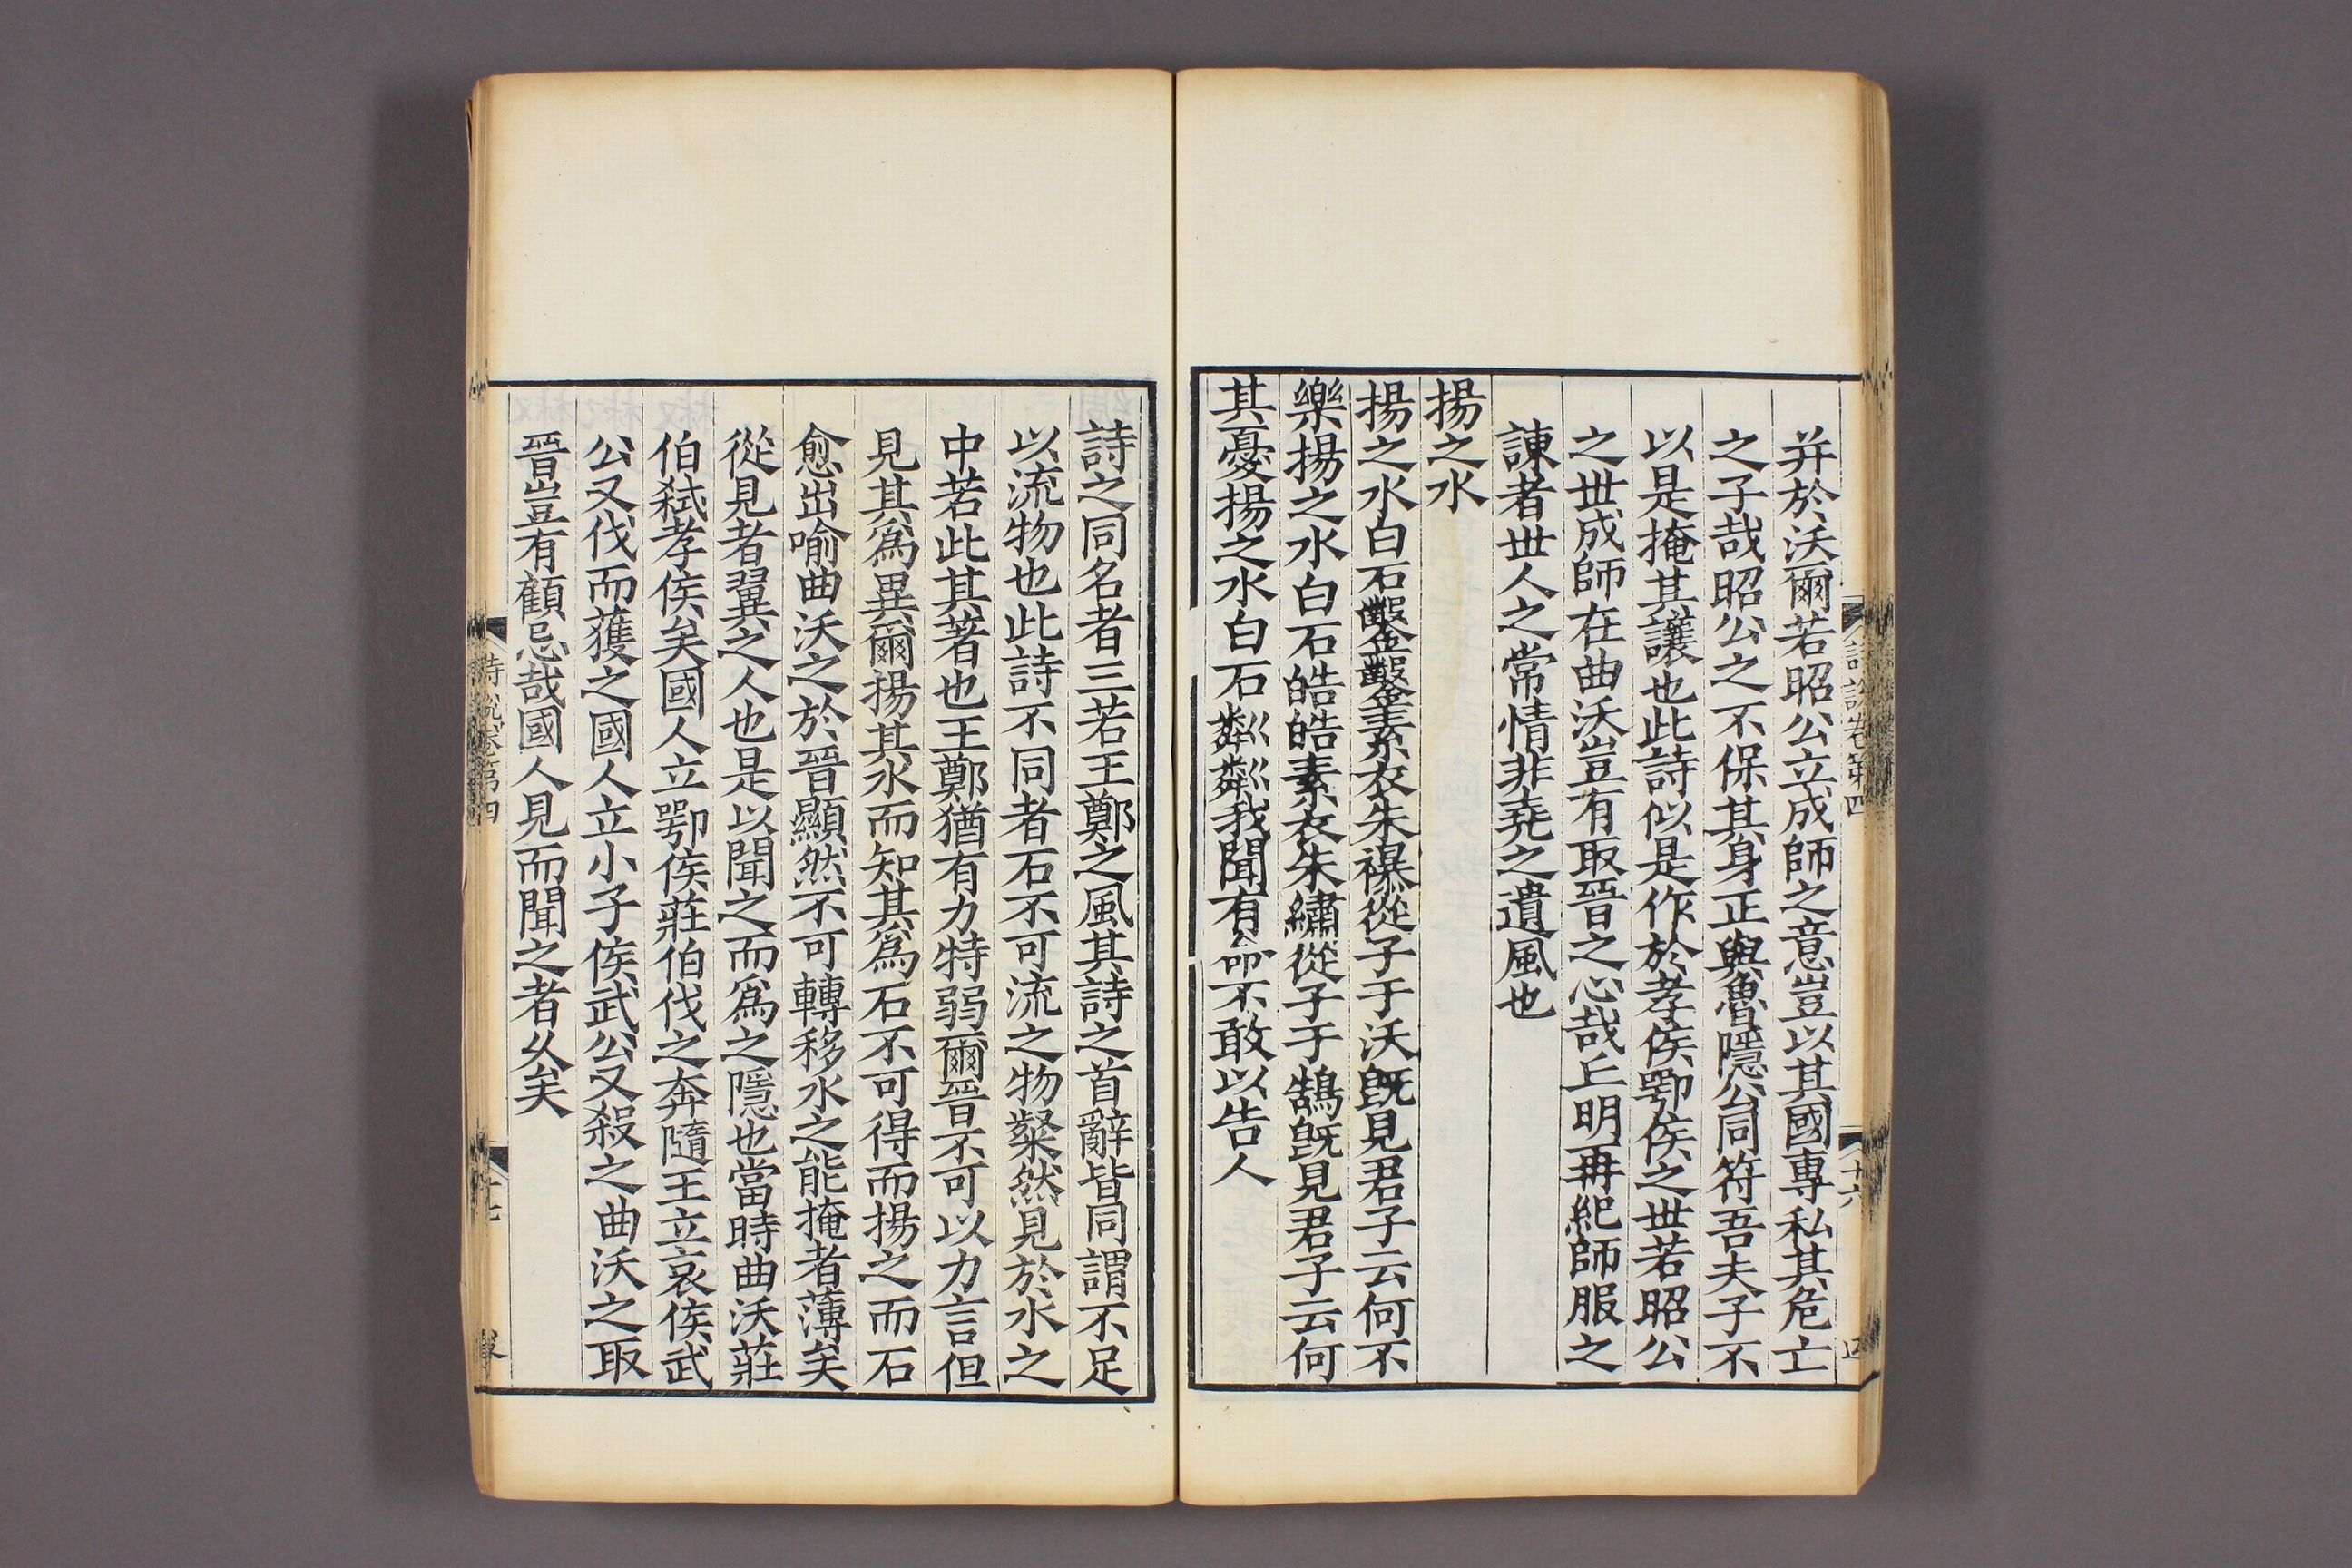 并於沃爾若昭公立成師之意豈以其國專私其危亡
之子哉昭公之不保其身正與魯隱公同符吾夫子不
以是掩其讓也此詩似是作於孝侯鄂侯之世若昭公
之世成師在曲沃豈有取晉之心哉丘明再紀師服之
諫者世人之常情非堯之遺風也
揚之水
揚之水白石鑿鑿素衣朱襮從子于沃旣見君子云何不
樂揚之水白石皓皓素衣朱繡從子于鵠旣見君子云何
其憂揚之水白石粼粼我聞有命不敢以告人
詩說卷第四
十六
詩之同名者三若王鄭之風其詩之首辭皆同謂不足
以流物也此詩不同者石不可流之物粲然見於水之
中若此其著也王鄭猶有力特弱爾晉不可以力言但
見其爲異爾揚其水而知其爲石不可得而揚之而石
愈出喻曲沃之於晉顯然不可轉移水之能掩者薄矣
從見者翼之人也是以聞之而爲之隱也當時曲沃莊
伯弒孝侯矣國人立鄂侯莊伯伐之奔隨王立哀侯武
公又伐而獲之國人立小子侯武公又殺之曲沃之取
晉豈有顧忌哉國人見而聞之者久矣
詩說卷第四
十七